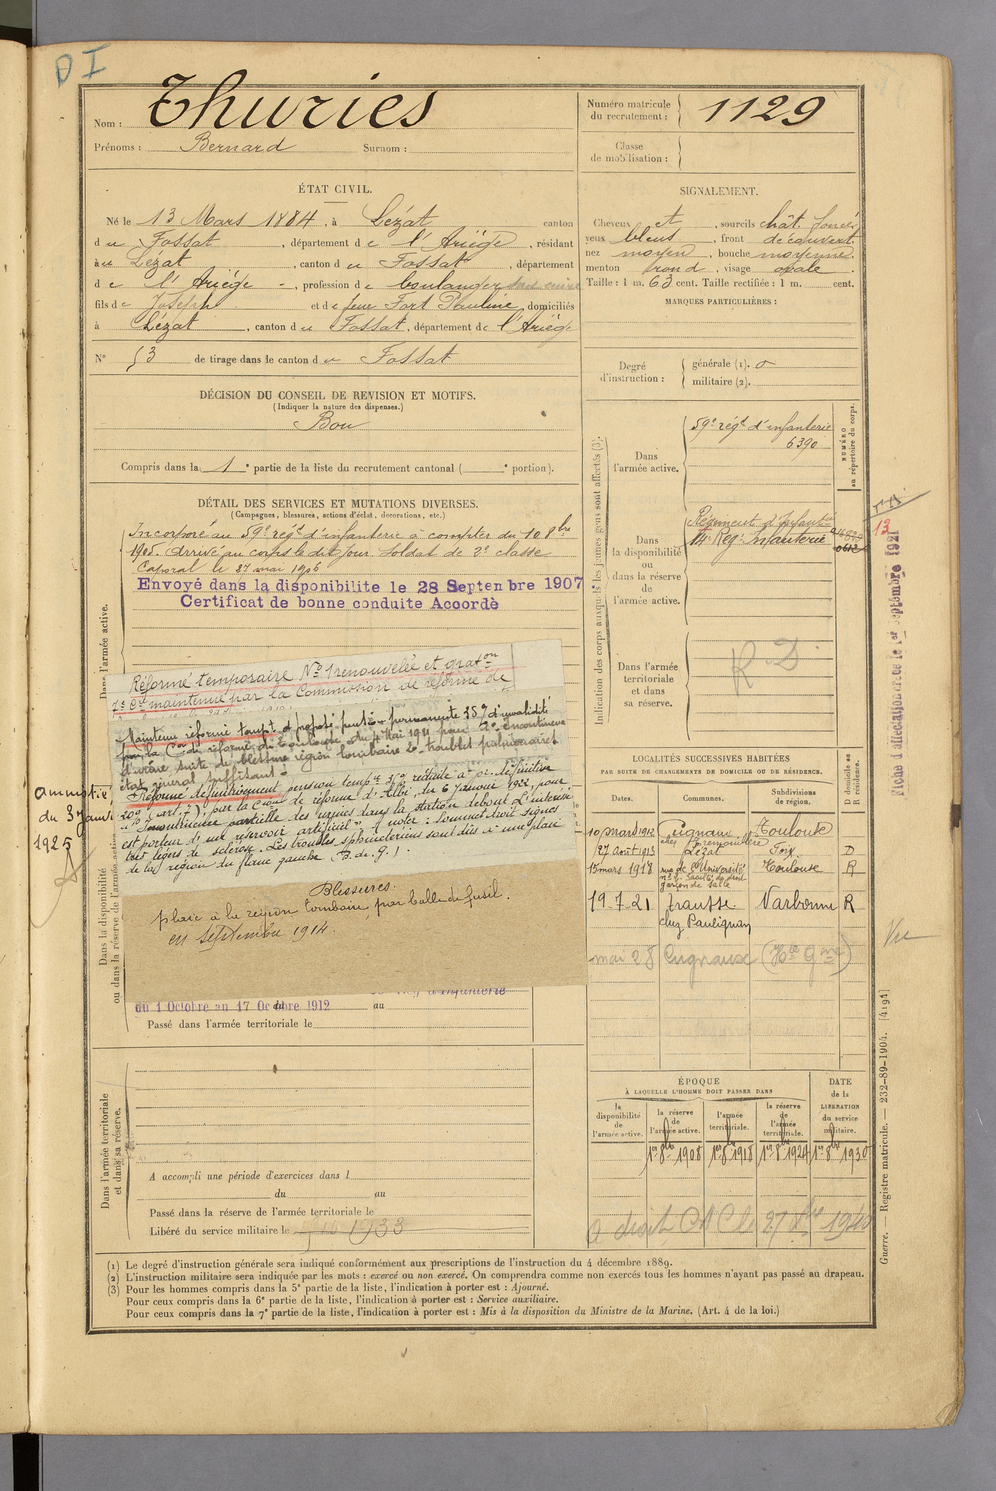 D I
Nom : Thuriès
Prénoms : Bernard Surnom :
Numéro matricule du recrutement : 1129
Classe de mobilisation :
ÉTAT CIVIL.
Né le 13 Mars 1884, à Lézat canton
du Fossat, département de l'Ariège, résidant
à Lézat, canton du Fossat, département
de l'Ariège, profession de boulanger
fils de Joseph et de feue Fort Pauline, domiciliés
à Lézat, canton du Fossat, département de l'Ariège
N° 53 de tirage dans le canton du Fossat
SIGNALEMENT.
Cheveux et, sourcils chât. foncé
yeux bleus, front découvert
nez moyen, bouche moyenne
menton rond, visage ovale.
Taille : 1 m. 63 cent. Taille rectifiée : 1 m. cent.
MARQUES PARTICULIÈRES :
Degré d'instruction : générale (1). 0
militaire (2).
DÉCISION DU CONSEIL DE REVISION ET MOTIFS.
(Indiquer la nature des dispenses.)
Bon
Compris dans la 1e partie de la liste du recrutement cantonal ( e portion).
DÉTAIL DES SERVICES ET MUTATIONS DIVERSES.
(Campagnes, blessures, actions d'éclat, décorations, etc.)
Dans l'armée active.
Incorporé au 59e régt d'infanterie à compter du 10 8bre
1905. Arrivé au corps le dit jour. Soldat de 2e classe
Caporal le 27 mai 1906
Envoyé dans la disponibilite le 28 Septenbre 1907
Certificat de bonne conduite Acoordè
Réformé temporaire No 1 renouvelée et graton
maintenue par la Commission de réforme de
Maintenu réformé tempt et proposé pension permanente 35% d'invalidité
par la Con de réforme de Toulouse du 4 Mai 1921 pour 1° incontinence
d'urine, suite de blessure région lombaire 2° troubles pulmonaires
état général suffisant.
Réformé définitivement, pension tempre
par la Cion de réforme d'Albi, du 6 Janvier 1922, pour
Incontinence partielle des urines dans la station debout. L'intéressé
est porteur d'un réservoir artificiel. à noter : Sommet droit signes
très légers de sclérose. Les troubles sphinctériens sont dûs à une plaie
de la région du flanc gauche (B. de g.).
Blessures.
plaie à la région lombaire, par balle de fusil.
en septembre 1914.
amnistié
du 3 janvier
1925
Dans la disponibilité ou dans la réserve de l'armée active.
d'infanterie
du 1 Octobre au 17 Octobre 1912 au
Passé dans l'armée territoriale le
Dans l'armée territoriale et dans sa réserve.
A accompli une période d'exercices dans l
du au
Passé dans la réserve de l'armée territoriale le
Libéré du service militaire le 1933
Indication des corps auxquels les jeunes gens sont affectés (3).
NUMÉRO au répertoire du corps.
Dans l'armée active.
59e régt d'infanterie
6390
Dans la disponibilité ou dans la réserve de l'armée active.
Régiment d'Infanterie
14 Reg. Infanterie
Dans l'armée territoriale et dans sa réserve.
R. D.
13
Fiche d'affectation créée le 1er septembre 1921
Vu
LOCALITÉS SUCCESSIVES HABITÉES
PAR SUITE DE CHANGEMENTS DE DOMICILE OU DE RÉSIDENCE.
Dates. Communes. Subdivisions de région. D domicile ou R résidence.
10 mars 1912 Cugnaux Toulouse
27 août 1913 Lézat Foix D
15 mars 1918 rue de l'Université Toulouse R
garçon de salle
19.7.21 Narbonne R
chez Paulignan
mai 28 Cugnaux (Hte Gne)
ÉPOQUE
À LAQUELLE L'HOMME DOIT PASSER DANS
DATE de la LIBÉRATION du service militaire.
la disponibilité de l'armée active. la réserve de l'armée active. l'armée territoriale. la réserve de l'armée territoriale.
1er 8bre 1908 1er 8bre 1918 1er 8bre 1924 1er 8bre 1930
a droit CAC le 27 1940
Guerre. — Registre matricule. — 232-89-1904. [4191]
(1) Le degré d'instruction générale sera indiqué conformément aux prescriptions de l'instruction du 4 décembre 1889.
(2) L'instruction militaire sera indiquée par les mots : exercé ou non exercé. On comprendra comme non exercés tous les hommes n'ayant pas passé au drapeau.
(3) Pour les hommes compris dans la 5e partie de la liste, l'indication à porter est : Ajourné.
Pour ceux compris dans la 6e partie de la liste, l'indication à porter est : Service auxiliaire.
Pour ceux compris dans la 7e partie de la liste, l'indication à porter est : Mis à la disposition du Ministre de la Marine. (Art. 4 de la loi.)